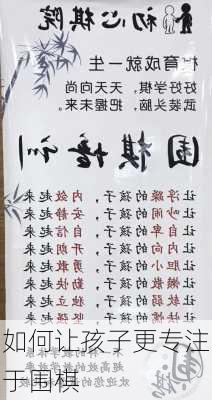 初心棋院
育成就一生
好好学棋 天天向上
武装头脑 把握未来
围棋培训
让浮躁的孩子，内敛起来
让吵闹的孩子，安静起来
让自卑的孩子，自信起来
让内向的孩子，开朗起来
让胆小的孩子，勇敢起来
让懒散的孩子，勤快起来
让软弱的孩子，坚强起来
如何让孩子更专注
于围棋